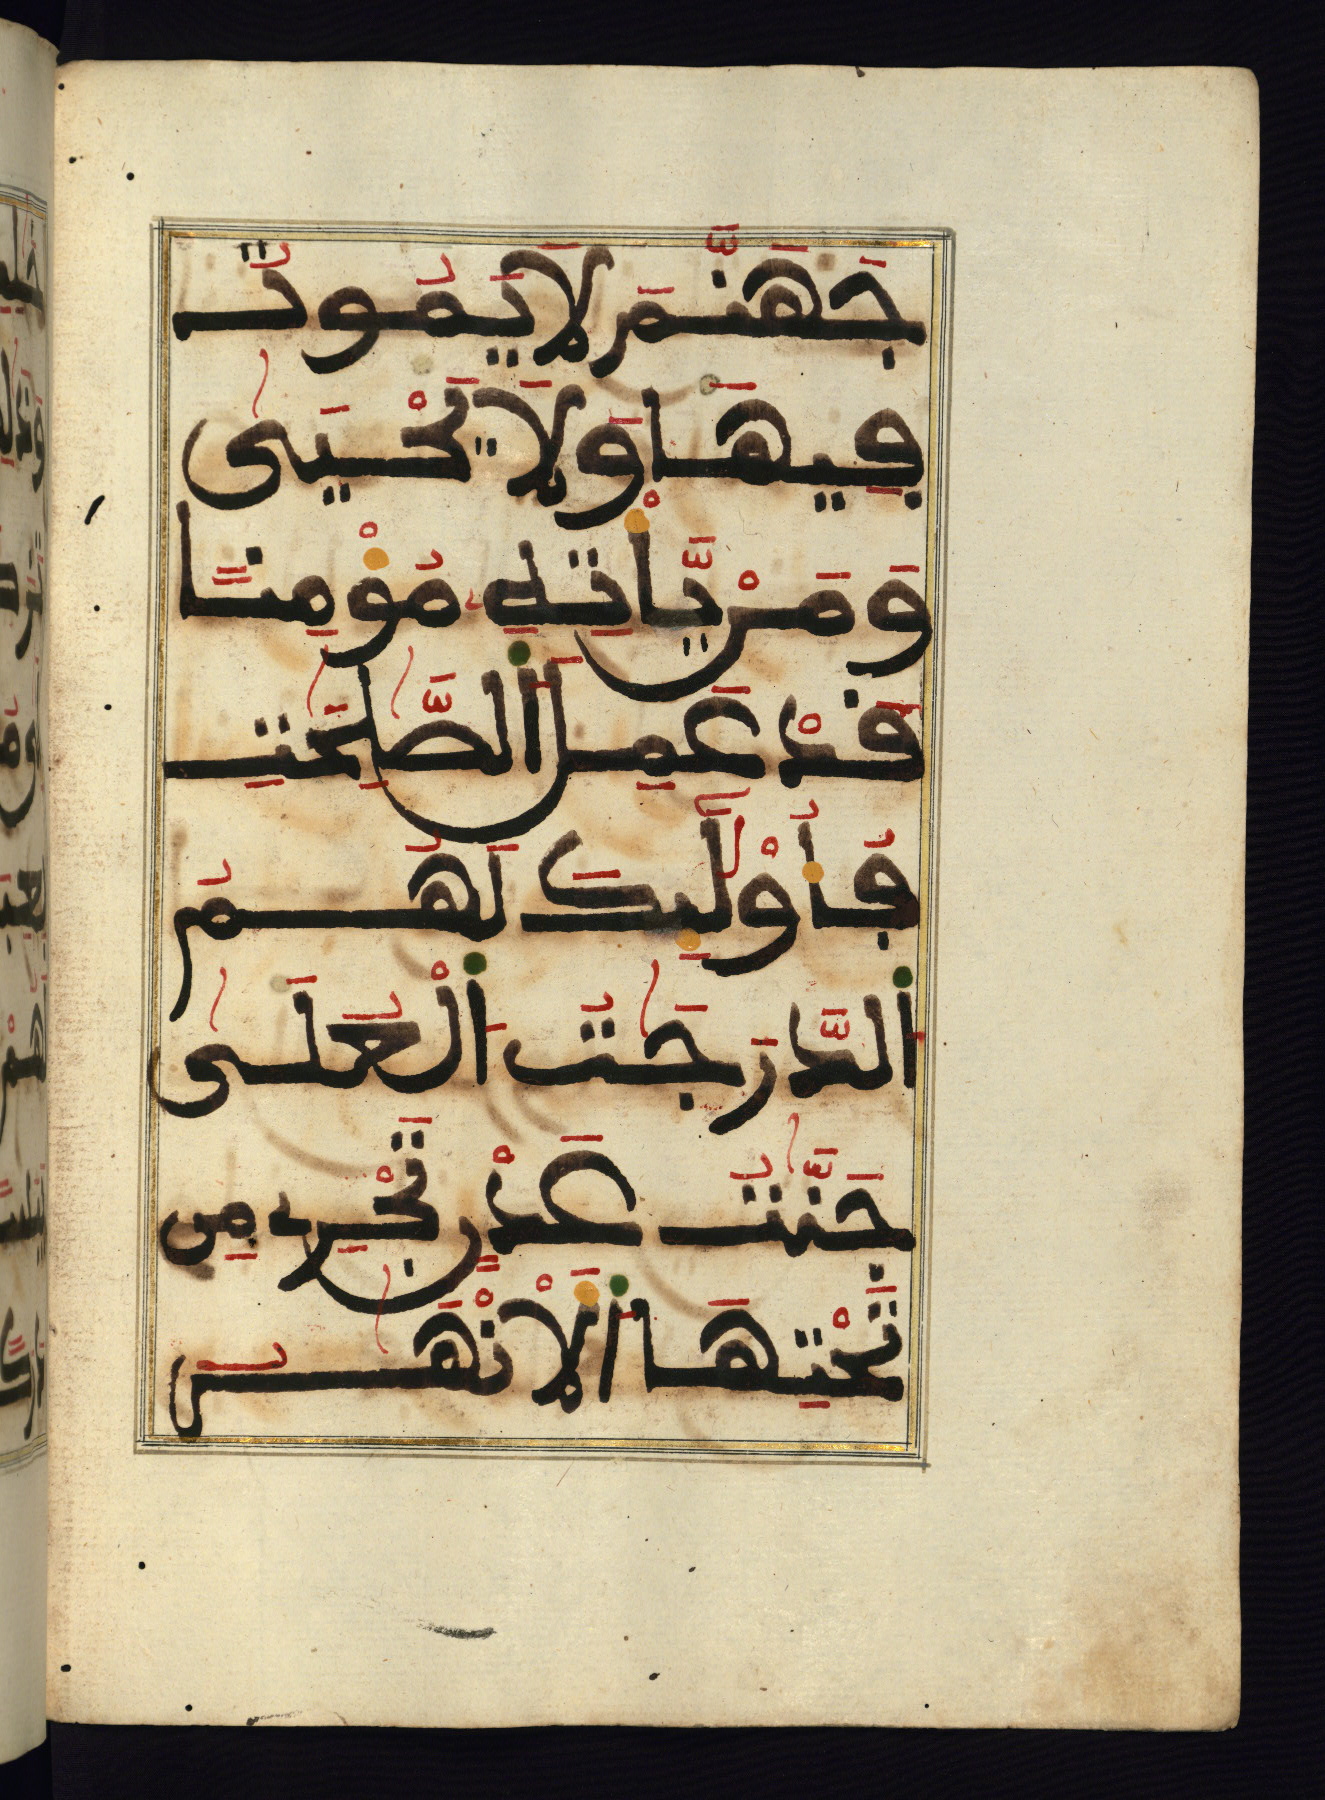 جَهَنَّمَ لَا يَمُوتُ
فِيهَا وَلَا يَحْيَىٰ
وَمَنْ يَّأْتِهِ مُؤْمِنًا
قَدْ عَمِلَ ٱلصَّٰلِحَٰتِ
فَأُوْلَٰٓئِكَ لَهُمُ
ٱلدَّرَجَٰتُ ٱلْعُلَىٰ
جَنَّٰتُ عَدْنٍ تَجْرِي مِن
تَحْتِهَا ٱلْأَنْهَٰرُ